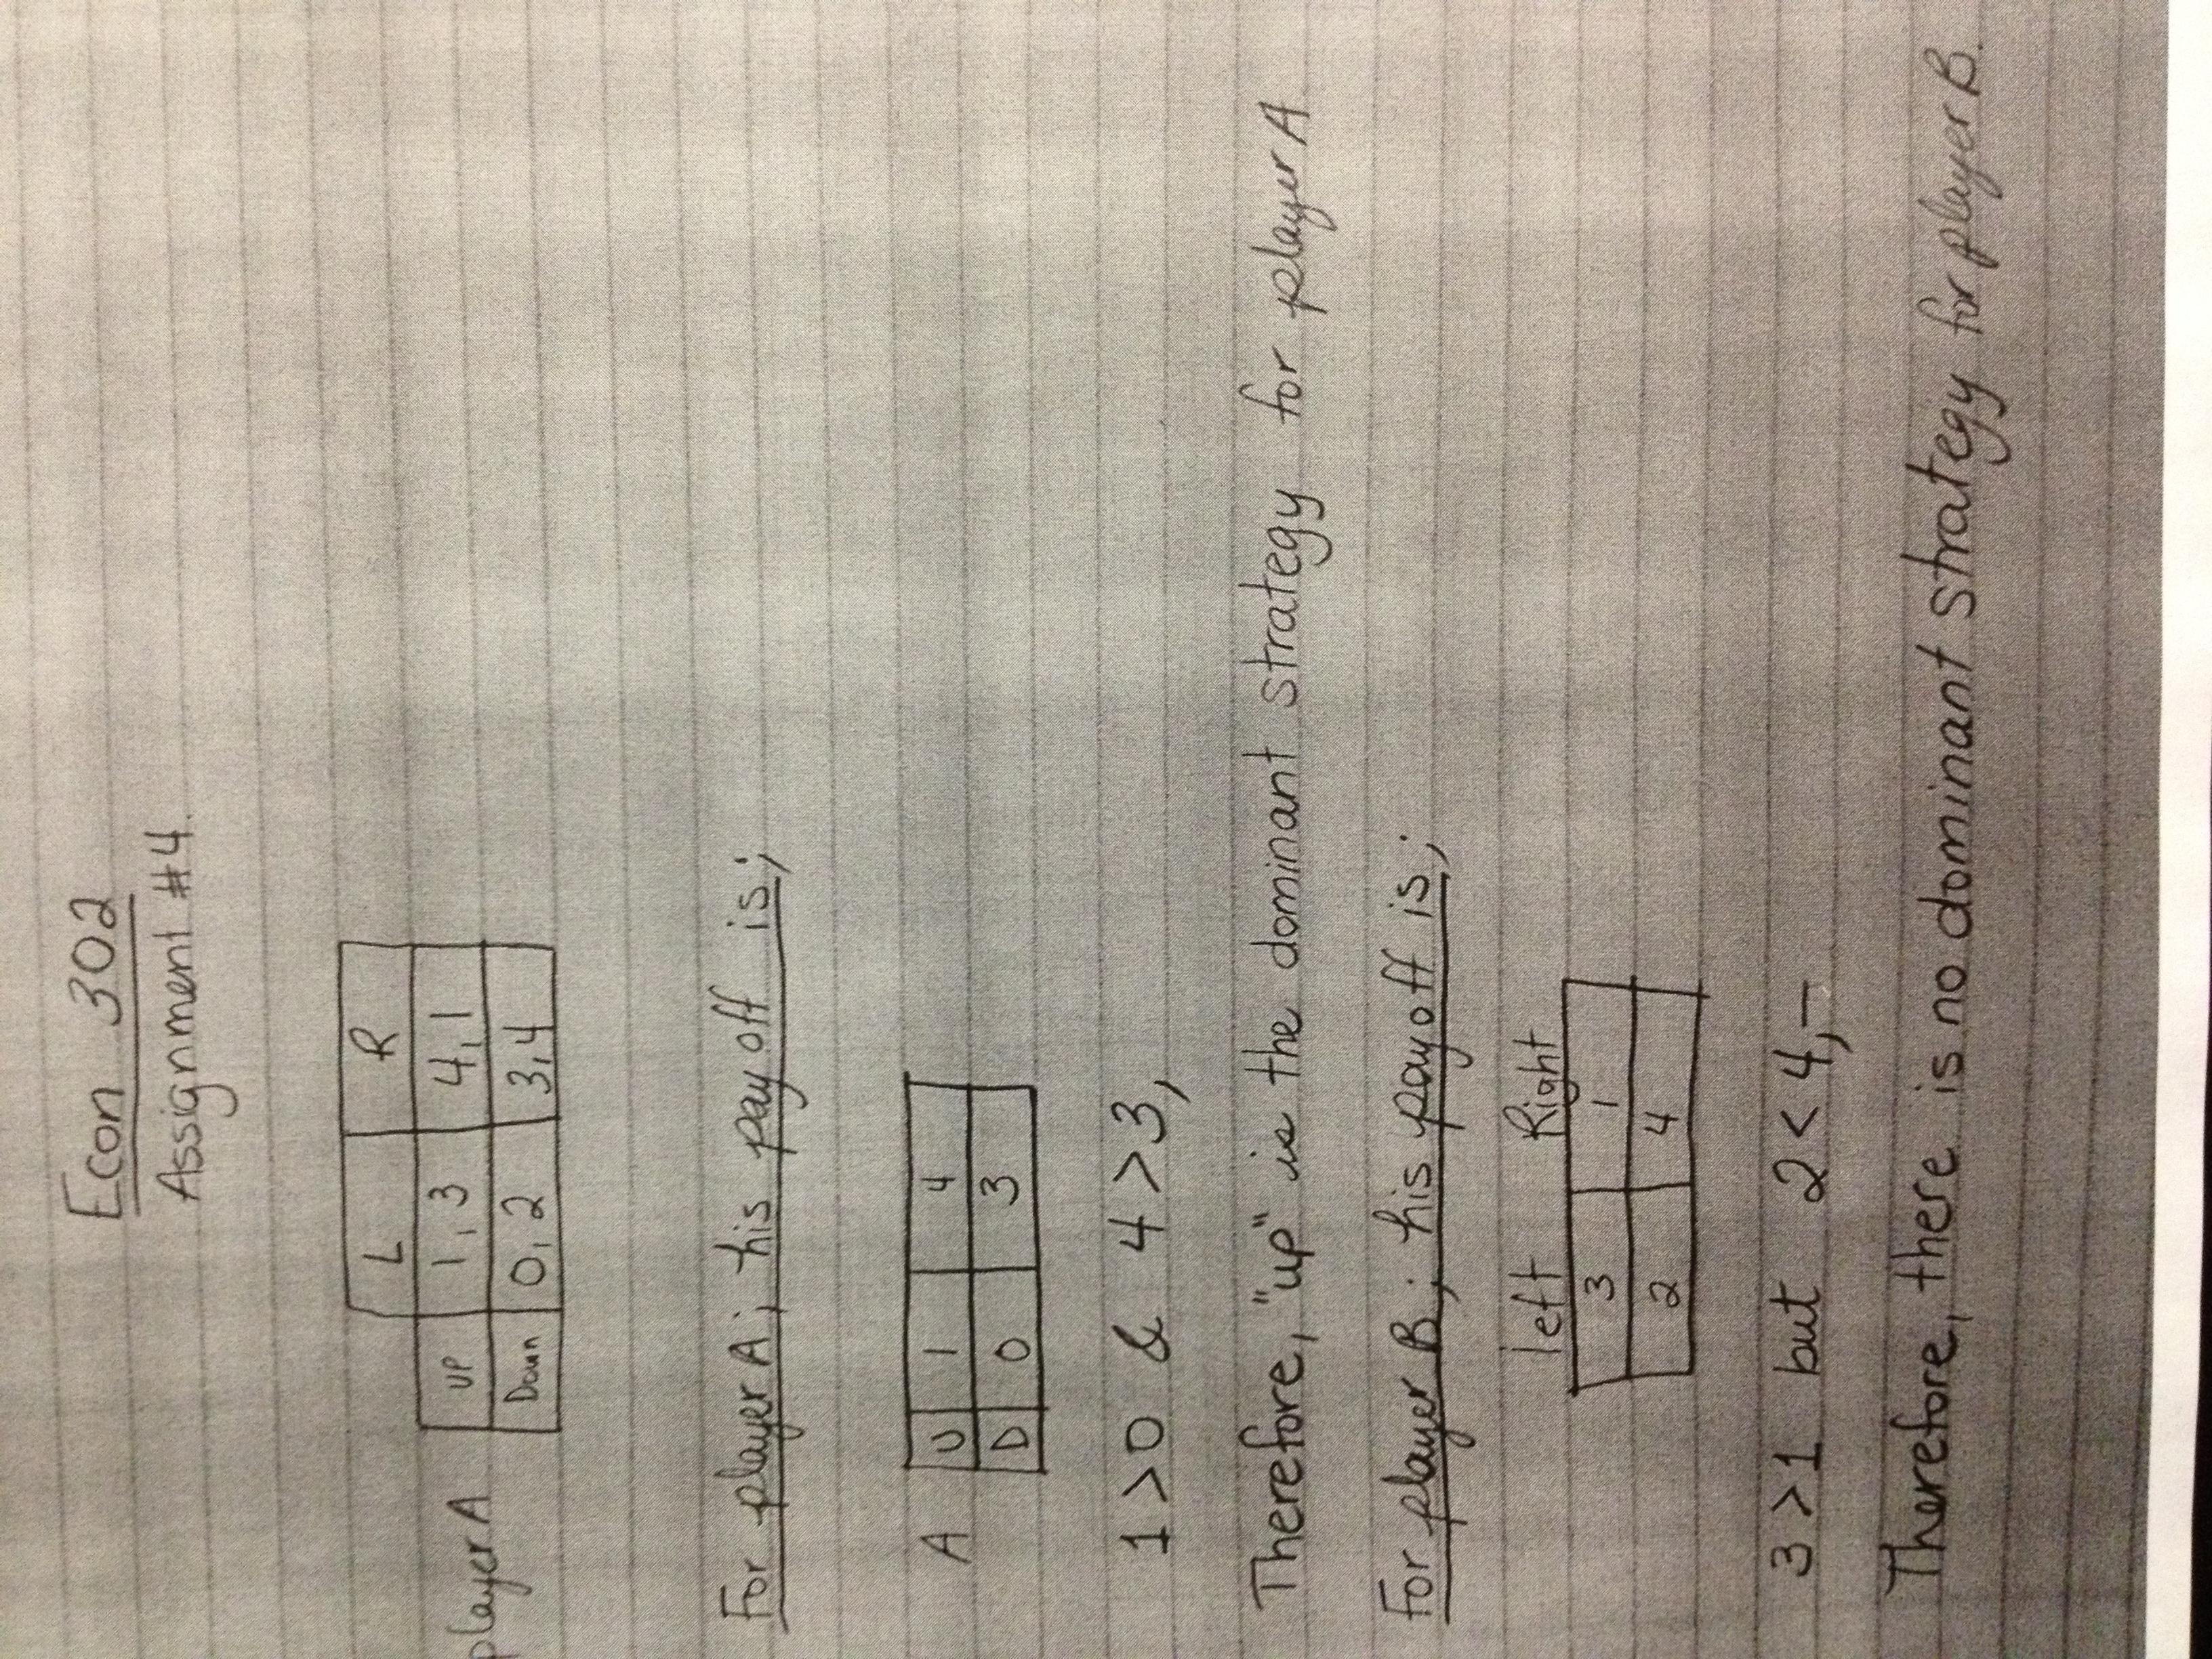 Econ 302
Assignment #4.
L R
player A UP 1,3 4,1
Down 0,2 3,4
For player A; his payoff is;
A U 1 4
D 0 3
1>0 & 4>3,
Therefore, "up" is the dominant strategy for player A
For player B; his payoff is;
left Right
3 1
2 4
3>1 but 2<4,-
Therefore, there is no dominant strategy for player B.